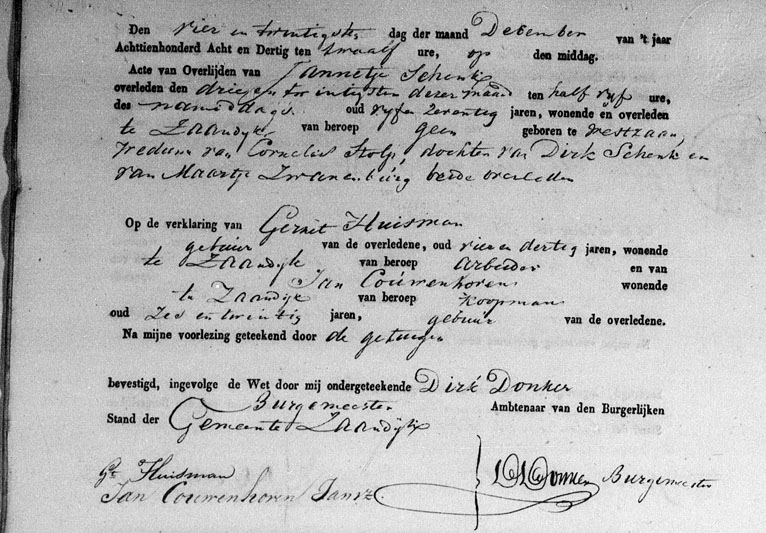 Den vier en twintigsten dag der maand December van 't jaar
Achttienhonderd Acht en Dertig ten twaalf ure, op den middag.
Acte van Overlijden van Jannetje Schenk
overleden den drieentwintigsten dezer maand ten half vyf ure,
des namiddags oud vyf en zeventig jaren, wonende en overleden
te Zaandyk van beroep geen geboren te Westzaan,
weduwe van Cornelis Stolp, dochter van Dirk Schenk en
van Maartje Zwanenburg beide overleden
Op de verklaring van Gerrit Huisman
gebuur van de overledene, oud vier en dertig jaren, wonende
te Zaandyk van beroep Arbeider en van
Jan Couwenhoven wonende
te Zaandyk van beroep Koopman
oud zes en twintig jaren, gebuur van de overledene.
Na mijne voorlezing geteekend door de getuigen
bevestigd, ingevolge de Wet door mij ondergeteekende Dirk Donker
Burgemeester Ambtenaar van den Burgerlijken
Stand der Gemeente Zaandijk
Gt Huisman
Jan Couwenhoven Jansz
Donker Burgemeester